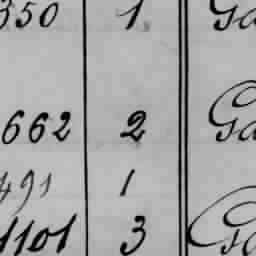 350 1 Ga
662 2 Ga
491 1
1101 3 Ga